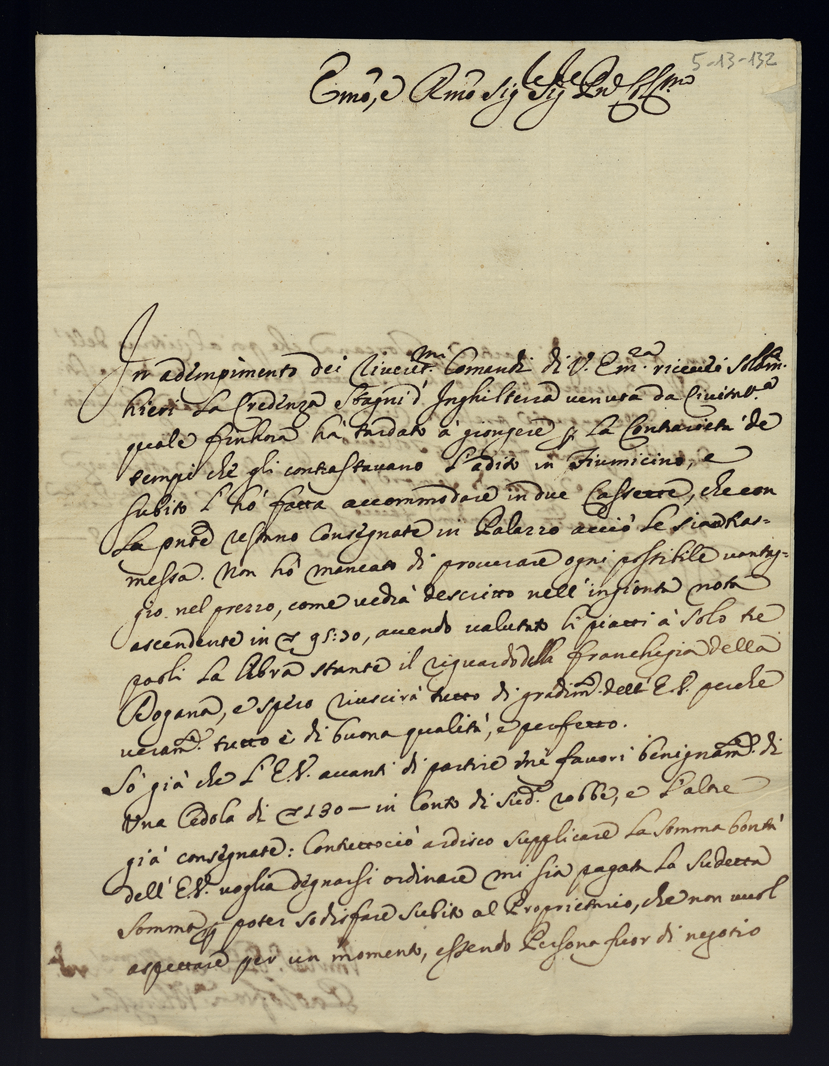 5-13-132
Emo, e Rmo Sig.re Sig.re Pne Colmo
In adempimento dei riverit.mi Comandi di V. Em.za ricevei
hieri la Credenza Stagni d'Inghilterra venuta da Civitav.a
quale finhora hà tardato à giongere p la Contrarietà de
tempi che gli contrastavano l'adito in Fiumicino, e
subito l'hò fatta accommodare in due Cassette, che con
la pnte restano Consegnate in Palazzo acciò le sia tras=
messa. Non hò mancato di procurare ogni possibile vantag=
gio nel prezzo, come vedrà descritto nell'ingionta nota
ascendente in 95:30, avendo valutato li piatti à solo tre
paoli la libra stante il riguardo della franchigia della
Dogana, e spero riuscirà tutto di gradim.to dell'E.V. perche
veram.te tutto è di buona qualità, e perfetto.
Sò già che l'E.V. avanti di partire mé favorì benignam.te di
una Cedola di 130 — in Conto di sud.e robbe, e l'altre
già consegnate: Contuttociò ardisco supplicare la somma bontà
dell'E.V. voglia degnarsi ordinare mi sia pagata la sudetta
somma p poter sodisfare subito al Proprietario, che non vuol
aspettare per un momento, essendo Persona fuor di negotio